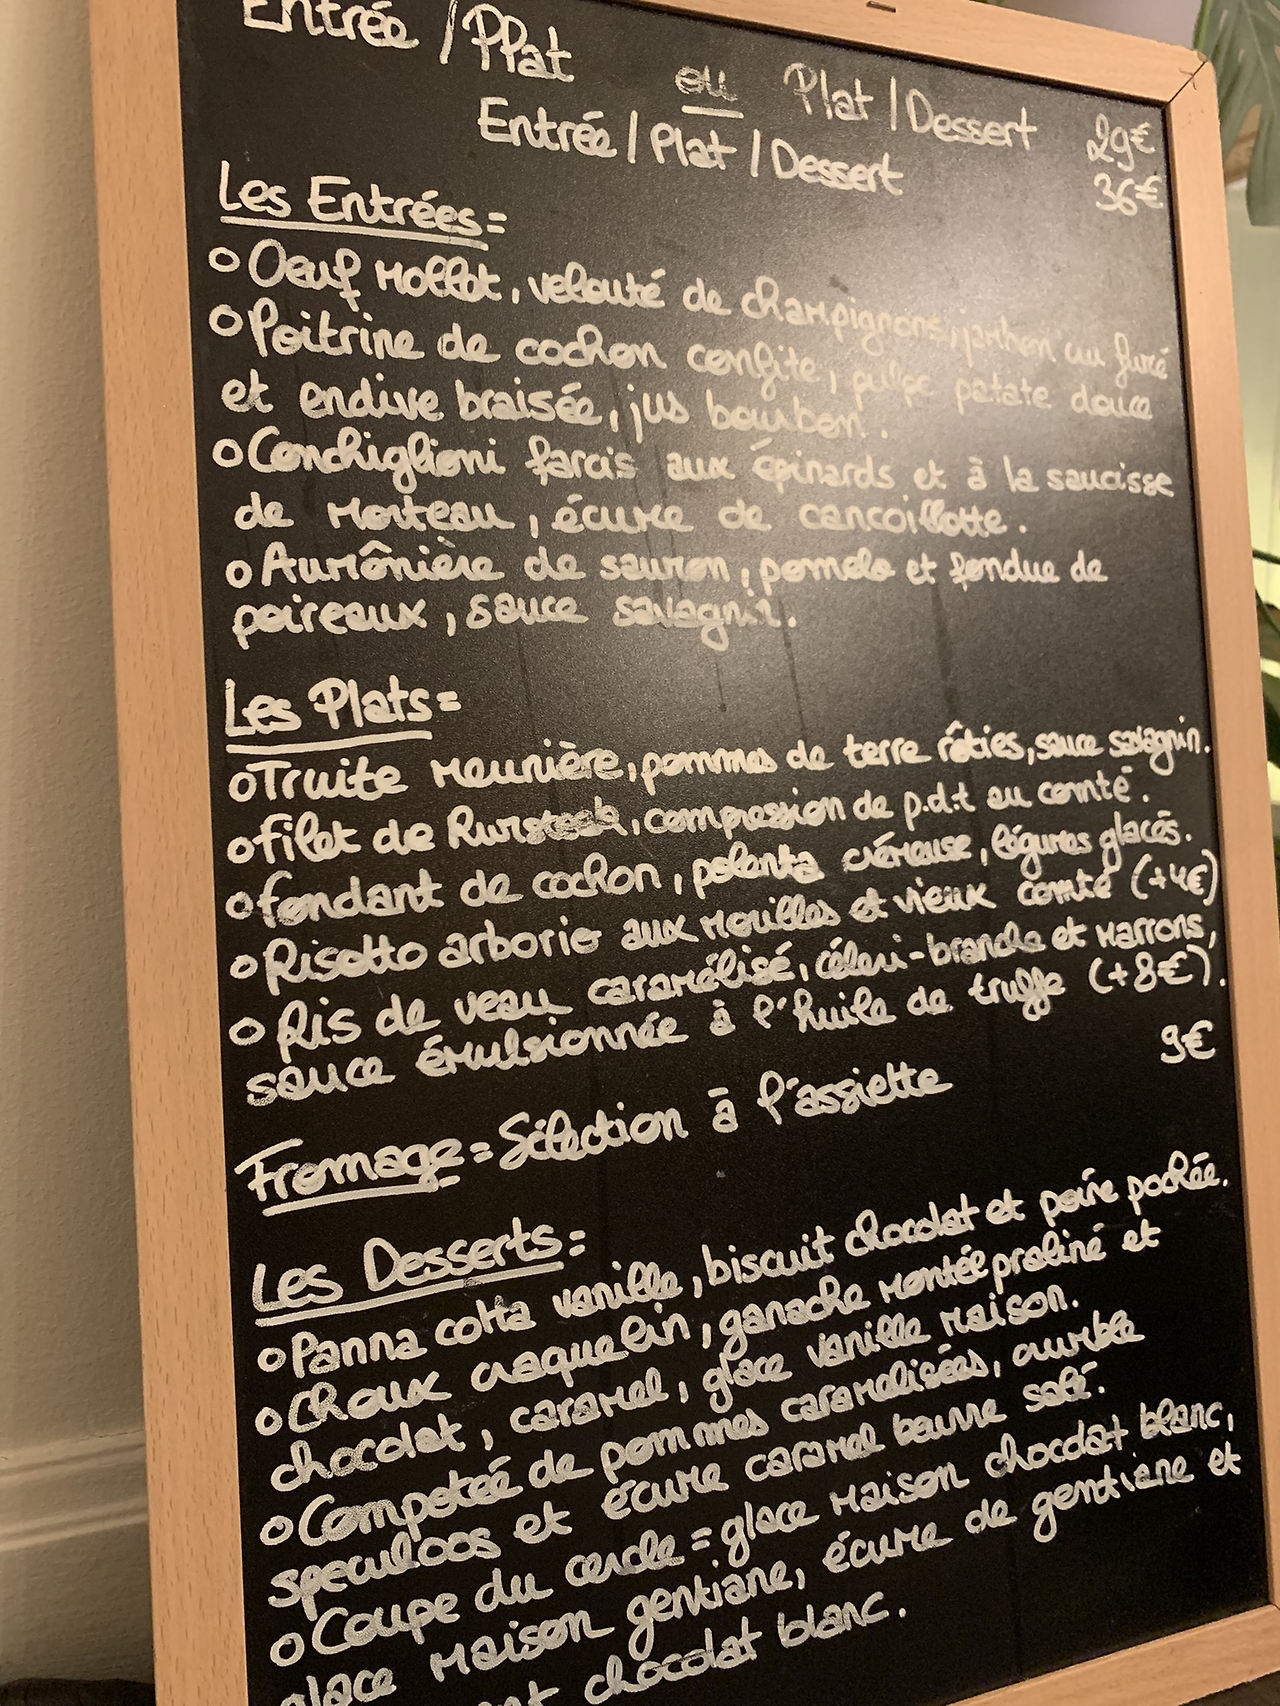 Entrée / Plat ou Plat / Dessert 29€
Entrée / Plat / Dessert 36€
Les Entrées =
o Oeuf mollet, velouté de champignons, jambon cru fumé
o Poitrine de cochon confite, pulpe patate douce
et endive braisée, jus bourbon.
o Conchiglioni farcis aux épinards et à la saucisse
de Morteau, écume de cancoillotte.
o Aumônière de saumon, pomelo et fondue de
poireaux, sauce savagnin.
Les Plats =
o Truite meunière, pommes de terre rôties, sauce savagnin.
o filet de Rumsteak, compression de p.d.t au comté.
o fondant de cochon, polenta crémeuse, légumes glacés.
o Risotto arborio aux morilles et vieux comté (+4€)
o Ris de veau caramélisé, céleri-branche et marrons,
sauce émulsionnée à l'huile de truffe (+8€).
Fromage = Sélection à l'assiette 9€
Les Desserts =
o Panna cotta vanille, biscuit chocolat et poire pochée.
o Choux craquelin, ganache montée praliné et
chocolat, caramel, glace vanille maison.
o Compoteé de pommes caramelisées, crumble
speculoos et écume caramel beurre salé.
o Coupe du cercle = glace maison chocolat blanc,
glace maison gentiane, écume de gentiane et
chocolat blanc.